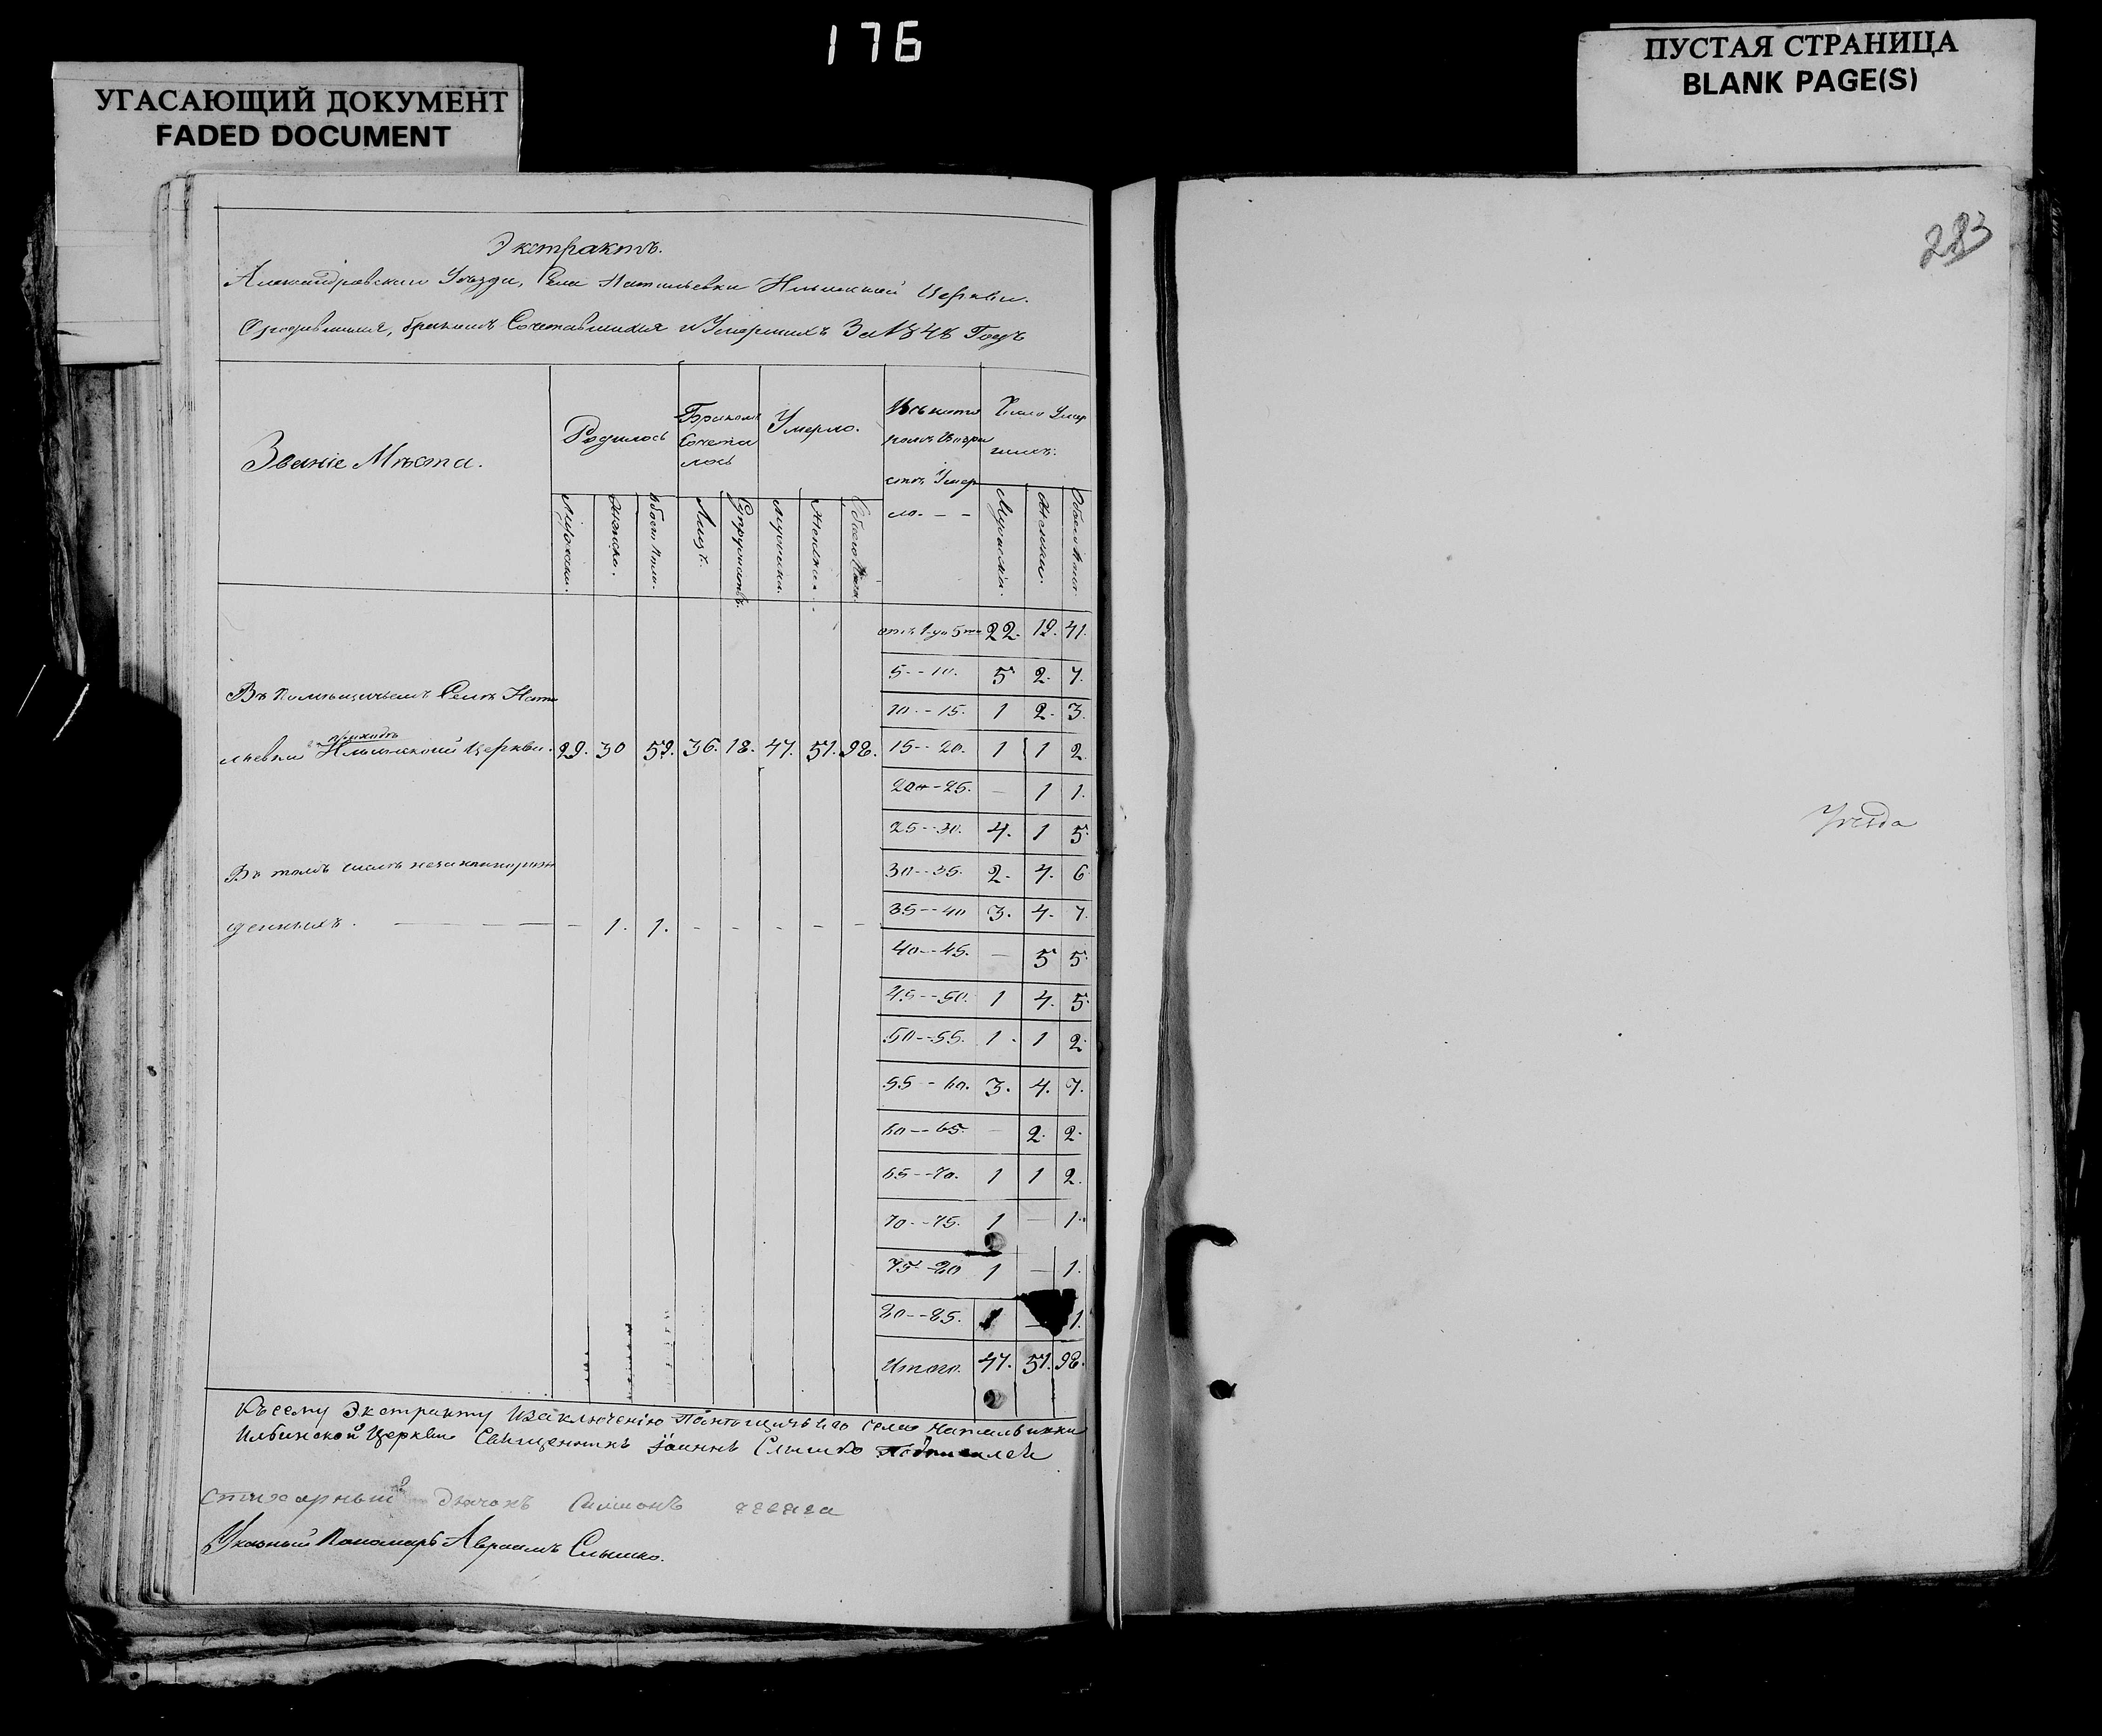 176
УГАСАЮЩИЙ ДОКУМЕНТ
FADED DOCUMENT
ПУСТАЯ СТРАНИЦА
BLANK PAGE(S)
283
Экстрактъ.
Александровскаго Уѣзда, Села Натальевки Ильинской Церкви.
О родившихся, бракомъ Сочетавшихся и Умершихъ За 1848 Годъ
Званіе Мѣста.
Родилось
Бракомъ Сочеталось
Умерло.
Число Умершихъ.
Мужеска. Женска. Обоего пола. Лицъ. Супружествъ. Мужеска. Женска. Обоего пола. Мужеска. Женска. Обоего пола.
отъ 1 до 5 22. 19. 41.
5--10. 5 2. 7.
Въ Помѣщичьемъ Селѣ Ната
10.-15. 1 2. 3.
приходѣ
льевки Ильинской Церкви. 29. 30 59. 36. 18. 47. 51. 98. 15--20. 1 1 2
20--25. — 1 1.
25--30. 4. 1 5.
Въ томъ числѣ незаконнорож
30--35. 2. 4. 6
35--40 3. 4. 7.
денныхъ. — — — — 1. 1. - - - - -
40--45. — 5 5.
45--50. 1 4. 5.
50--55. 1. 1 2.
55-60. 3. 4. 7.
60--65. — 2. 2.
65--70. 1 1 2.
70.-75. 1 — 1.
75.-80 1 — 1.
80--85. 1 — 1.
Итого. 47. 51. 98.
Къ сему Экстракту
Ильинской Церкви Священникъ Іоаннъ Слышко
Стихарный Дьячокъ Симионъ
Указный Пономарь Авраамъ Слышко.
Уѣзда